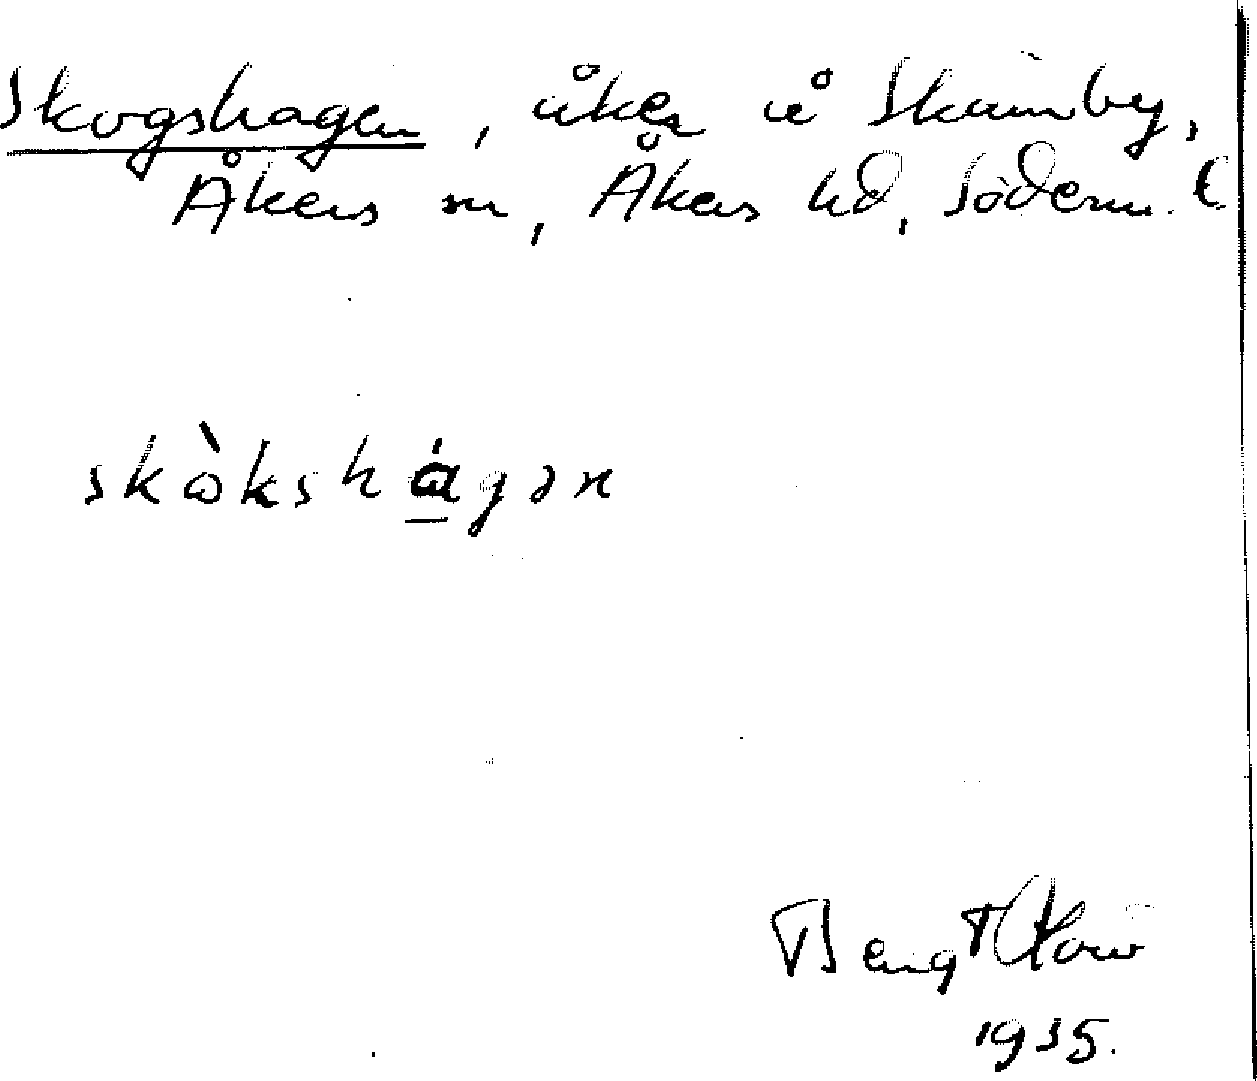 Skogshagen, åker å Skämby,
Åkers sn, Åkers hd, Söderm.
skɷ̀kshágən
Bengt
1935.